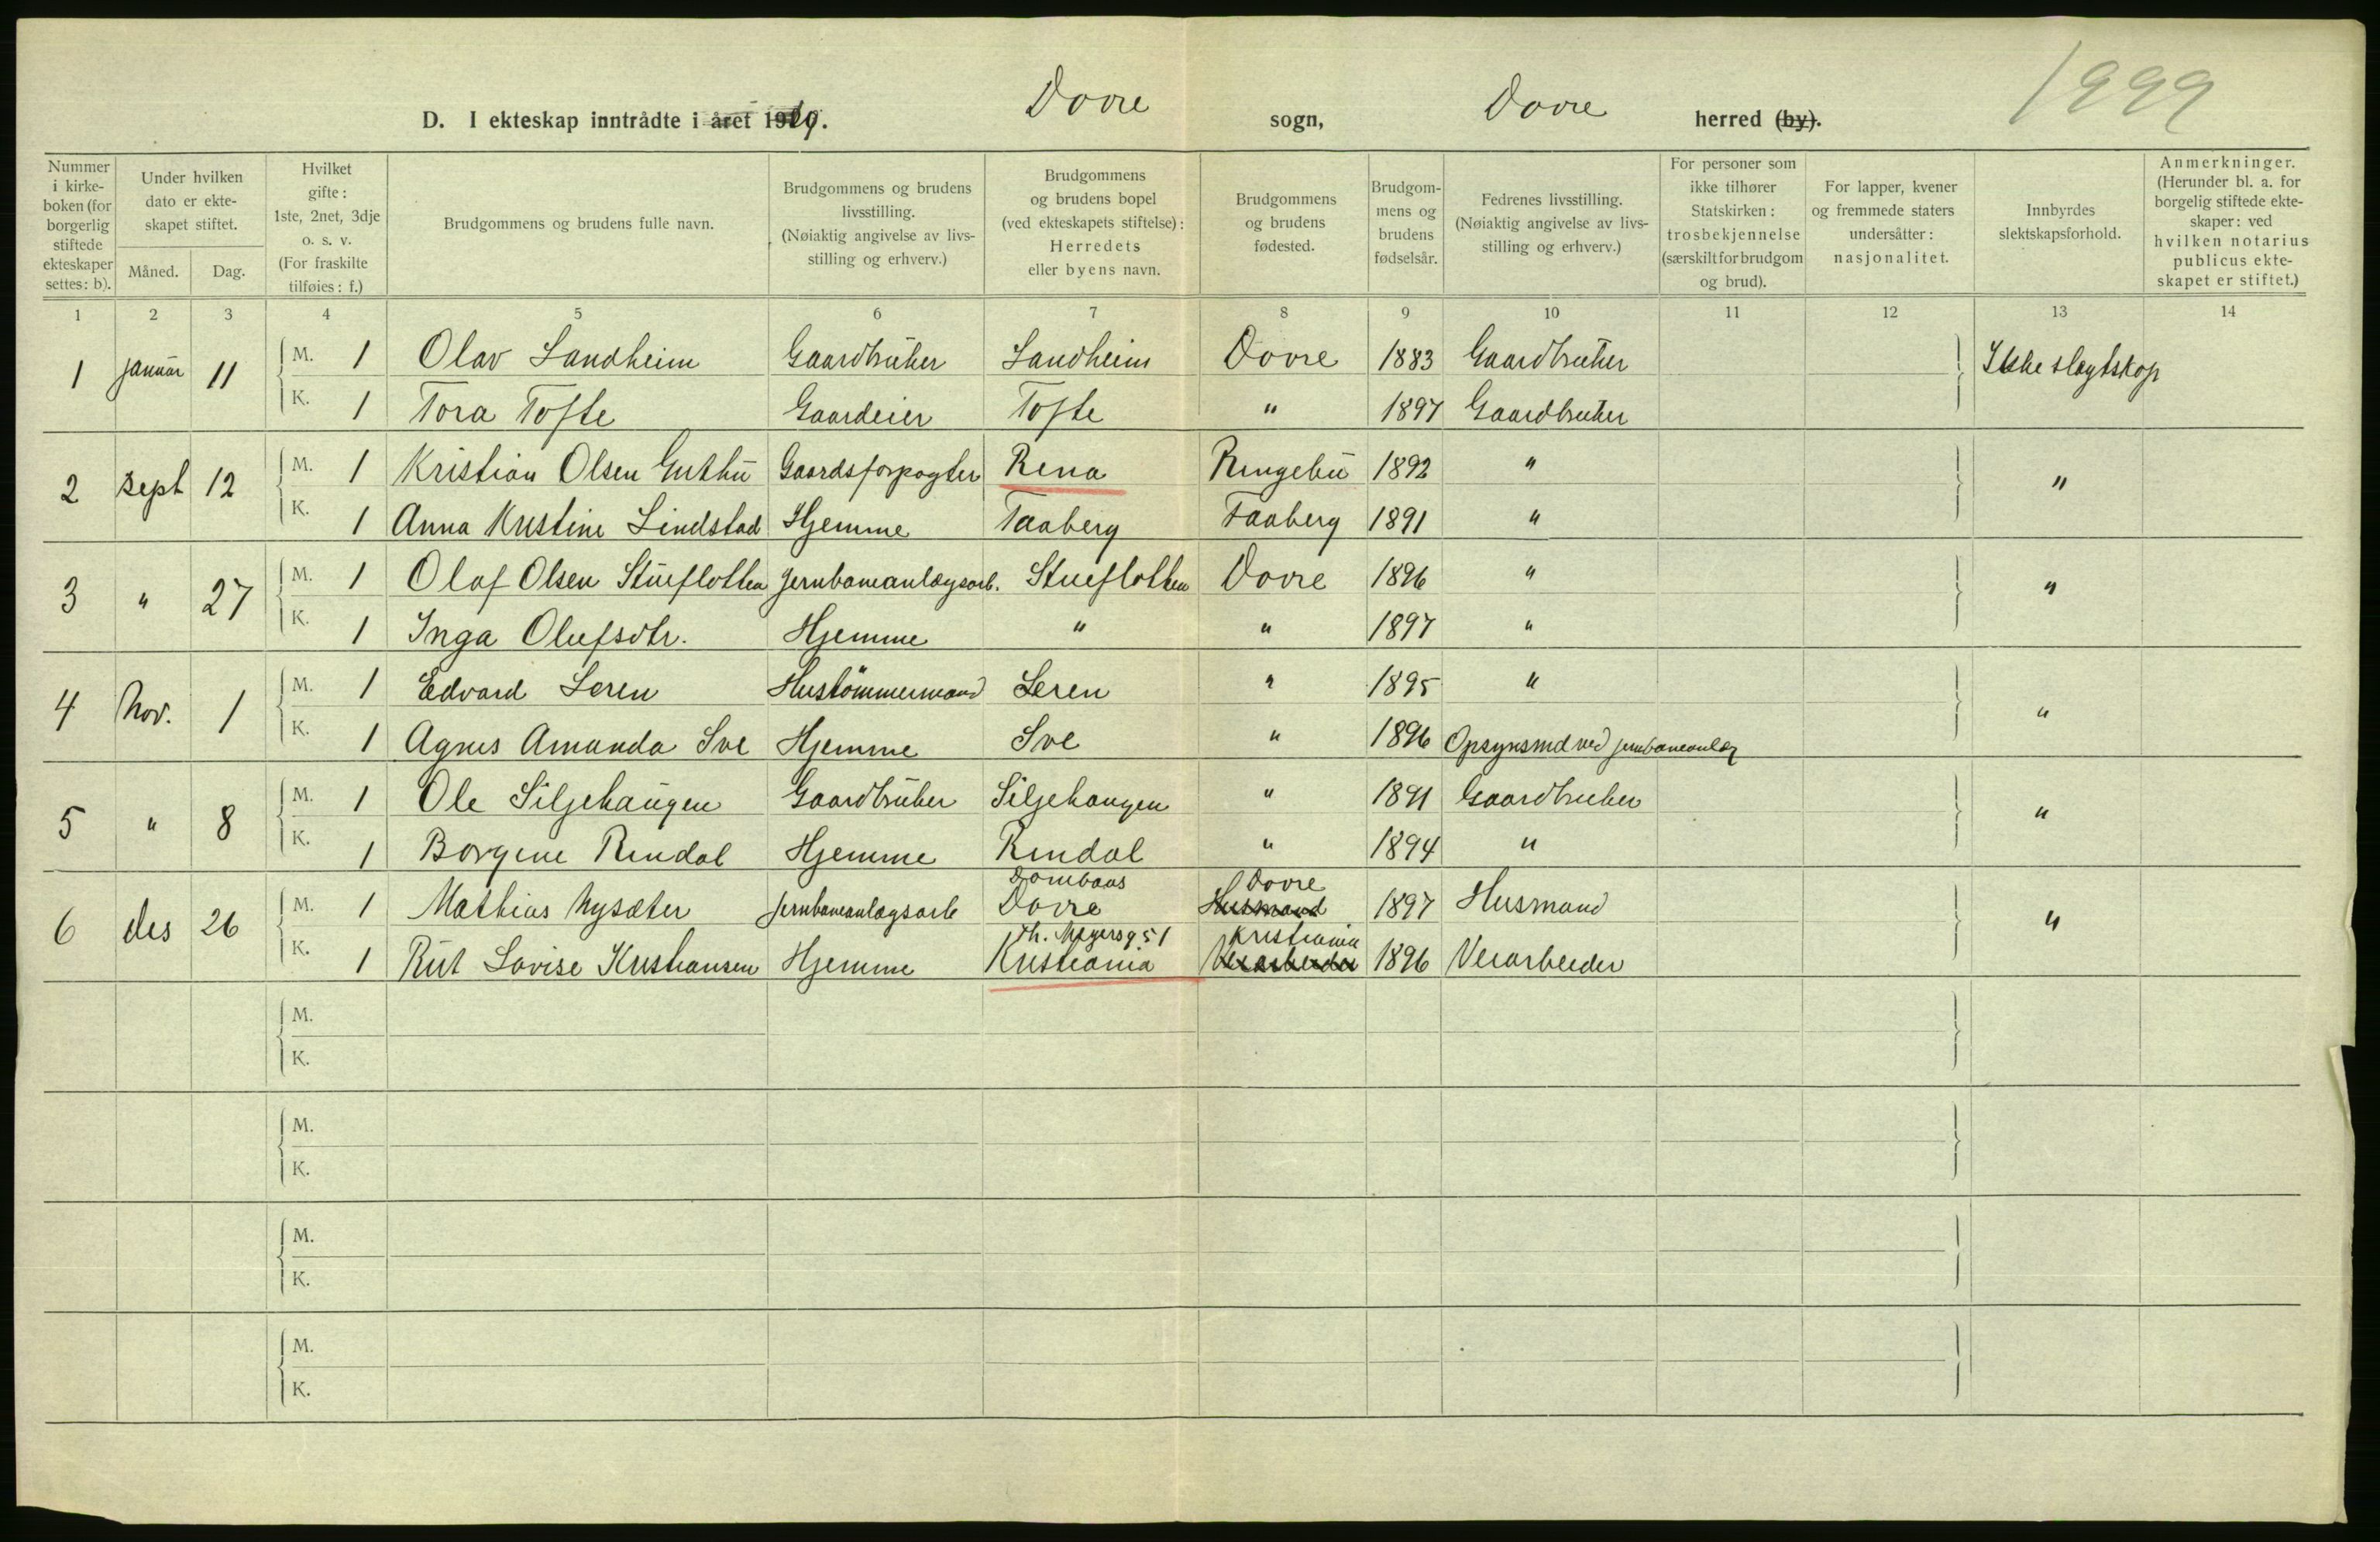 1999
D. I ekteskap inntrådte i året 1919. Dovre sogn, Dovre herred (by).
Nummer i kirkeboken (for borgerlig stiftede ekteskaper settes: b).
Under hvilken dato er ekteskapet stiftet.
Måned. Dag.
Hvilket gifte: 1ste, 2net, 3dje o. s. v. (For fraskilte tilføies: f.)
Brudgommens og brudens fulle navn.
Brudgommens og brudens livsstilling. (Nøiaktig angivelse av livsstilling og erhverv.)
Brudgommens og brudens bopel (ved ekteskapets stiftelse): Herredets eller byens navn.
Brudgommens og brudens fødested.
Brudgommens og brudens fødselsår.
Fedrenes livsstilling. (Nøiaktig angivelse av livsstilling og erhverv.)
For personer som ikke tilhører Statskirken: trosbekjennelse (særskilt for brudgom og brud).
For lapper, kvener og fremmede staters undersåtter: nasjonalitet.
Innbyrdes slektskapsforhold.
Anmerkninger. (Herunder bl. a. for borgelig stiftede ekteskaper: ved hvilken notarius publicus ekteskapet er stiftet.)
1 2 3 4 5 6 7 8 9 10 11 12 13 14
1 januar 11 M. 1 Olav Landheim Gaardbruker Landheim Dovre 1883 Gaardbruker Ikke slegtskap
K. 1 Tora Tofte Gaardeier Tofte " 1897 Gaardbruker
2 sept 12 M. 1 Kristian Olsen Guthu Gaardsforpagter Rena Ringebu 1892 " "
K. 1 Anna Kristine Lindstad Hjemme Faaberg Faaberg 1891 "
3 " 27 M. 1 Olaf Olsen Stueflotten Jernbaneanlægsarb. Stueflotten Dovre 1896 " "
K. 1 Inga Olufsdtr. Hjemme " " 1897 "
4 Nov. 1 M. 1 Edvard Leren Hustömmermand Leren " 1895 " "
K. 1 Agnes Amanda Sve Hjemme Sve " 1896 Opsynsmd ved jernbaneanlæg
5 " 8 M. 1 Ole Siljehaugen Gaardbruker Siljehaugen " 1891 Gaardbruker "
K. 1 Borgine Rindal Hjemme Rindal " 1894 "
Dombaas Dovre
6 des 26 M. 1 Mathias Nysæter Jernbaneanlagsarb Dovre Husmand 1897 Husmand "
Th. Meyersg 51 Kristiania
K. 1 Rut Lovise Kristiansen Hjemme Kristiania Veiarbeider 1896 Veiarbeider
M.
K.
M.
K.
M.
K.
M.
K.